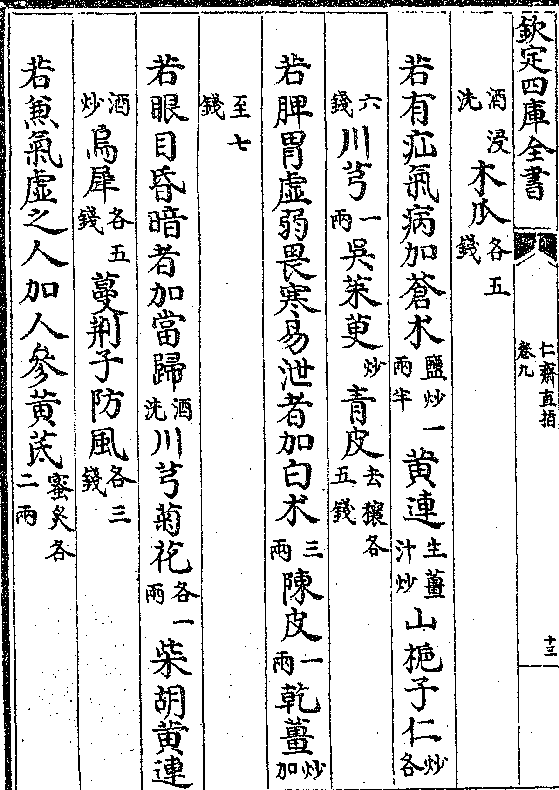 欽定四庫全書
仁齋直指
卷九
十三
酒浸洗木瓜各五錢
若有疝氣病加蒼术鹽炒一兩半黄連生薑汁炒山梔子仁炒各
六錢川芎一兩吳茱萸炒青皮去穰各五錢
若脾胃虛弱畏寒易泄者加白术三兩陳皮一兩乾薑炒加
至七錢
若眼目昏暗者加當歸酒洗川芎菊花各一兩柴胡黄連
酒炒烏犀各五錢蔓荆子防風各三錢
若兼氣虛之人加人參黄芪蜜炙各二兩